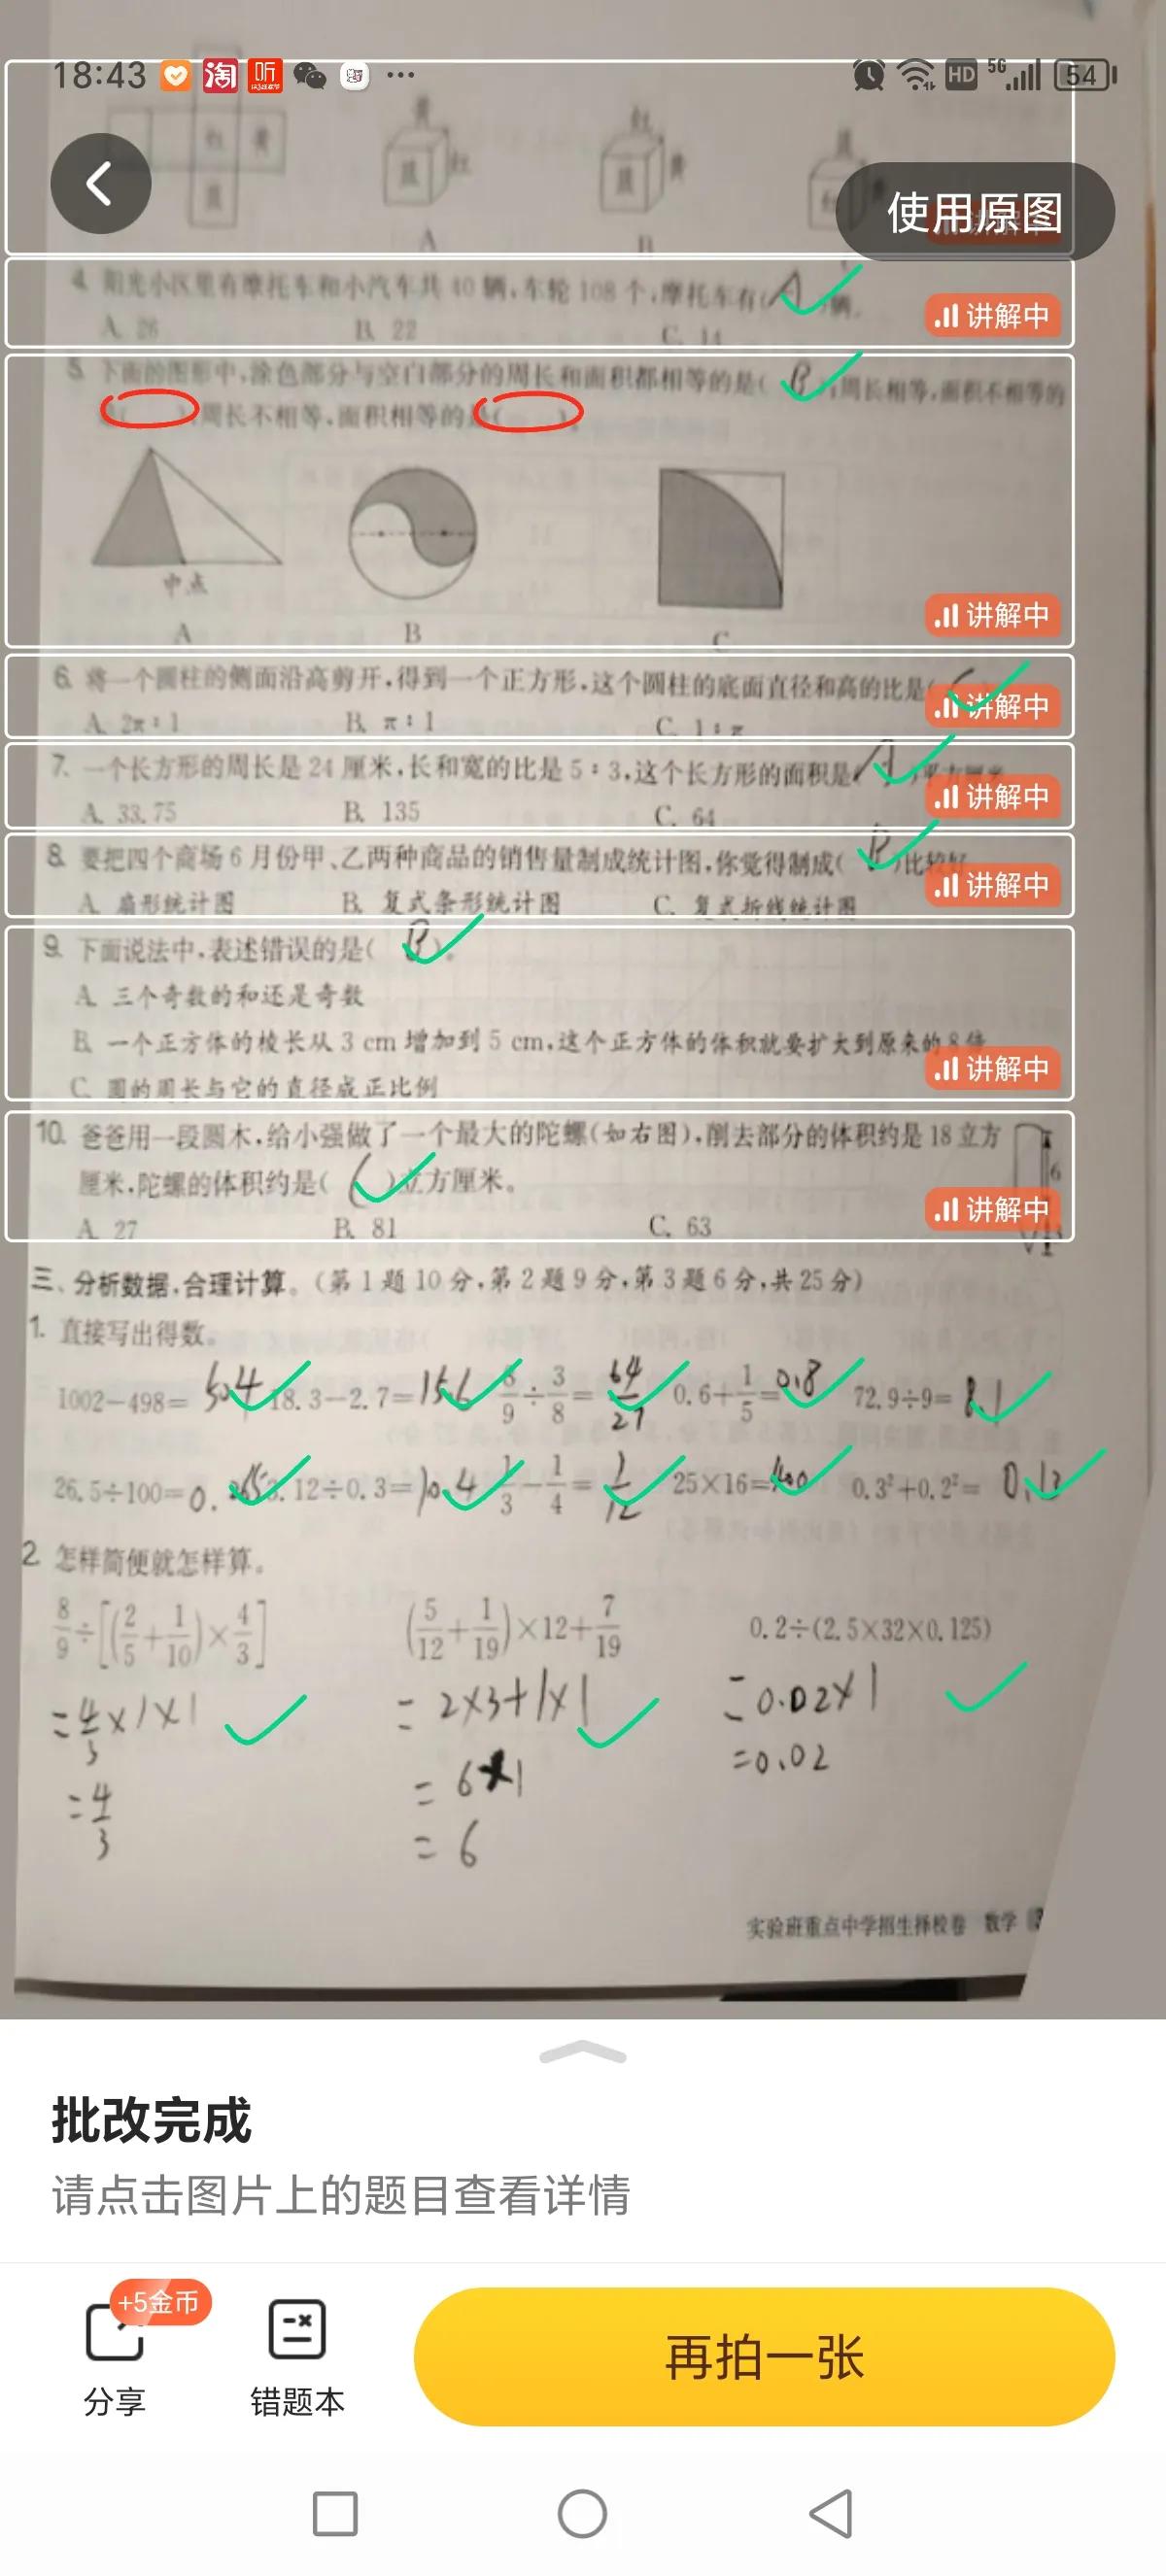 18:43 淘 听 HD 5G 54
红 黄
蓝
黄
蓝 红
红
蓝 黄
蓝
红
A B
使用原图
4. 阳光小区里有摩托车和小汽车共 40 辆,车轮 108 个,摩托车有( A )辆。
A. 26 B. 22 C. 14
讲解中
5. 下面的图形中,涂色部分与空白部分的周长和面积都相等的是( B );周长相等,面积不相等的
是( );周长不相等,面积相等的是( )。
中点
A B C
讲解中
6. 将一个圆柱的侧面沿高剪开,得到一个正方形,这个圆柱的底面直径和高的比是( C
A. 2π∶1 B. π∶1 C. 1∶π
讲解中
7. 一个长方形的周长是 24 厘米,长和宽的比是 5∶3,这个长方形的面积是( A )平方厘米
A. 33.75 B. 135 C. 64
讲解中
8. 要把四个商场 6 月份甲、乙两种商品的销售量制成统计图,你觉得制成( B )比较好
A. 扇形统计图 B. 复式条形统计图 C. 复式折线统计图
讲解中
9. 下面说法中,表述错误的是( B )。
A. 三个奇数的和还是奇数
B. 一个正方体的棱长从 3 cm 增加到 5 cm,这个正方体的体积就要扩大到原来的 8 倍
C. 圆的周长与它的直径成正比例
讲解中
10. 爸爸用一段圆木,给小强做了一个最大的陀螺(如右图),削去部分的体积约是 18 立方
厘米,陀螺的体积约是( C )立方厘米。
6
A. 27 B. 81 C. 63
讲解中
三、分析数据,合理计算。(第 1 题 10 分,第 2 题 9 分,第 3 题 6 分,共 25 分)
1. 直接写出得数。
1002−498= 504 18.3−2.7= 15.6 8/9÷3/8= 64/27 0.6+1/5= 0.8 72.9÷9= 8.1
26.5÷100= 0.265 3.12÷0.3= 10.4 1/3−1/4= 1/12 25×16= 400 0.3²+0.2²= 0.13
2. 怎样简便就怎样算。
8/9÷[(2/5+1/10)×4/3] (5/12+1/19)×12+7/19 0.2÷(2.5×32×0.125)
=4/3×1×1 = 2×3+1×1 =0.02×1
=4/3 = 6×1 =0.02
= 6
实验班重点中学招生择校卷 数学
批改完成
请点击图片上的题目查看详情
+5金币
分享 错题本 再拍一张